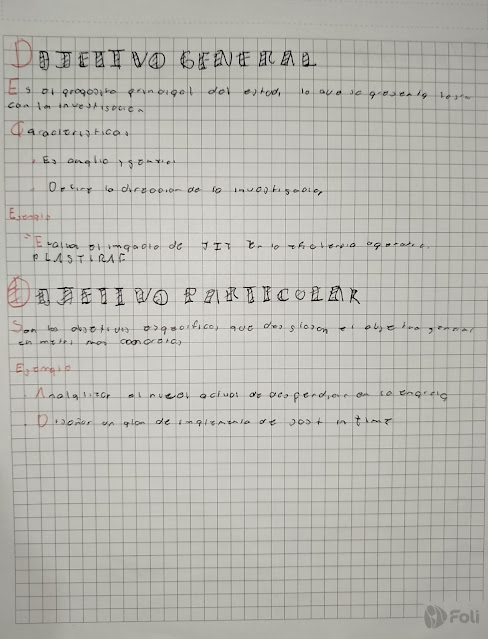 OBJETIVO GENERAL
Es el proposito principal del estudi, lo que se presenta
con la investigacion
Caracteristicas
Es amplio y general
Define la direccion de la investigacion
Ejemplo
"Evaluar el impacto de JIT en la eficiencia operativa
PLASTIRAF.
OBJETIVO PARTICULAR
Son los objetivos especificos que desglosan el objetivo general
en metas mas concretas
Ejemplo
Analalizar el nivel actual de desperdicio en la empresa
Diseñar un plan de implementa de Just in time
Foli